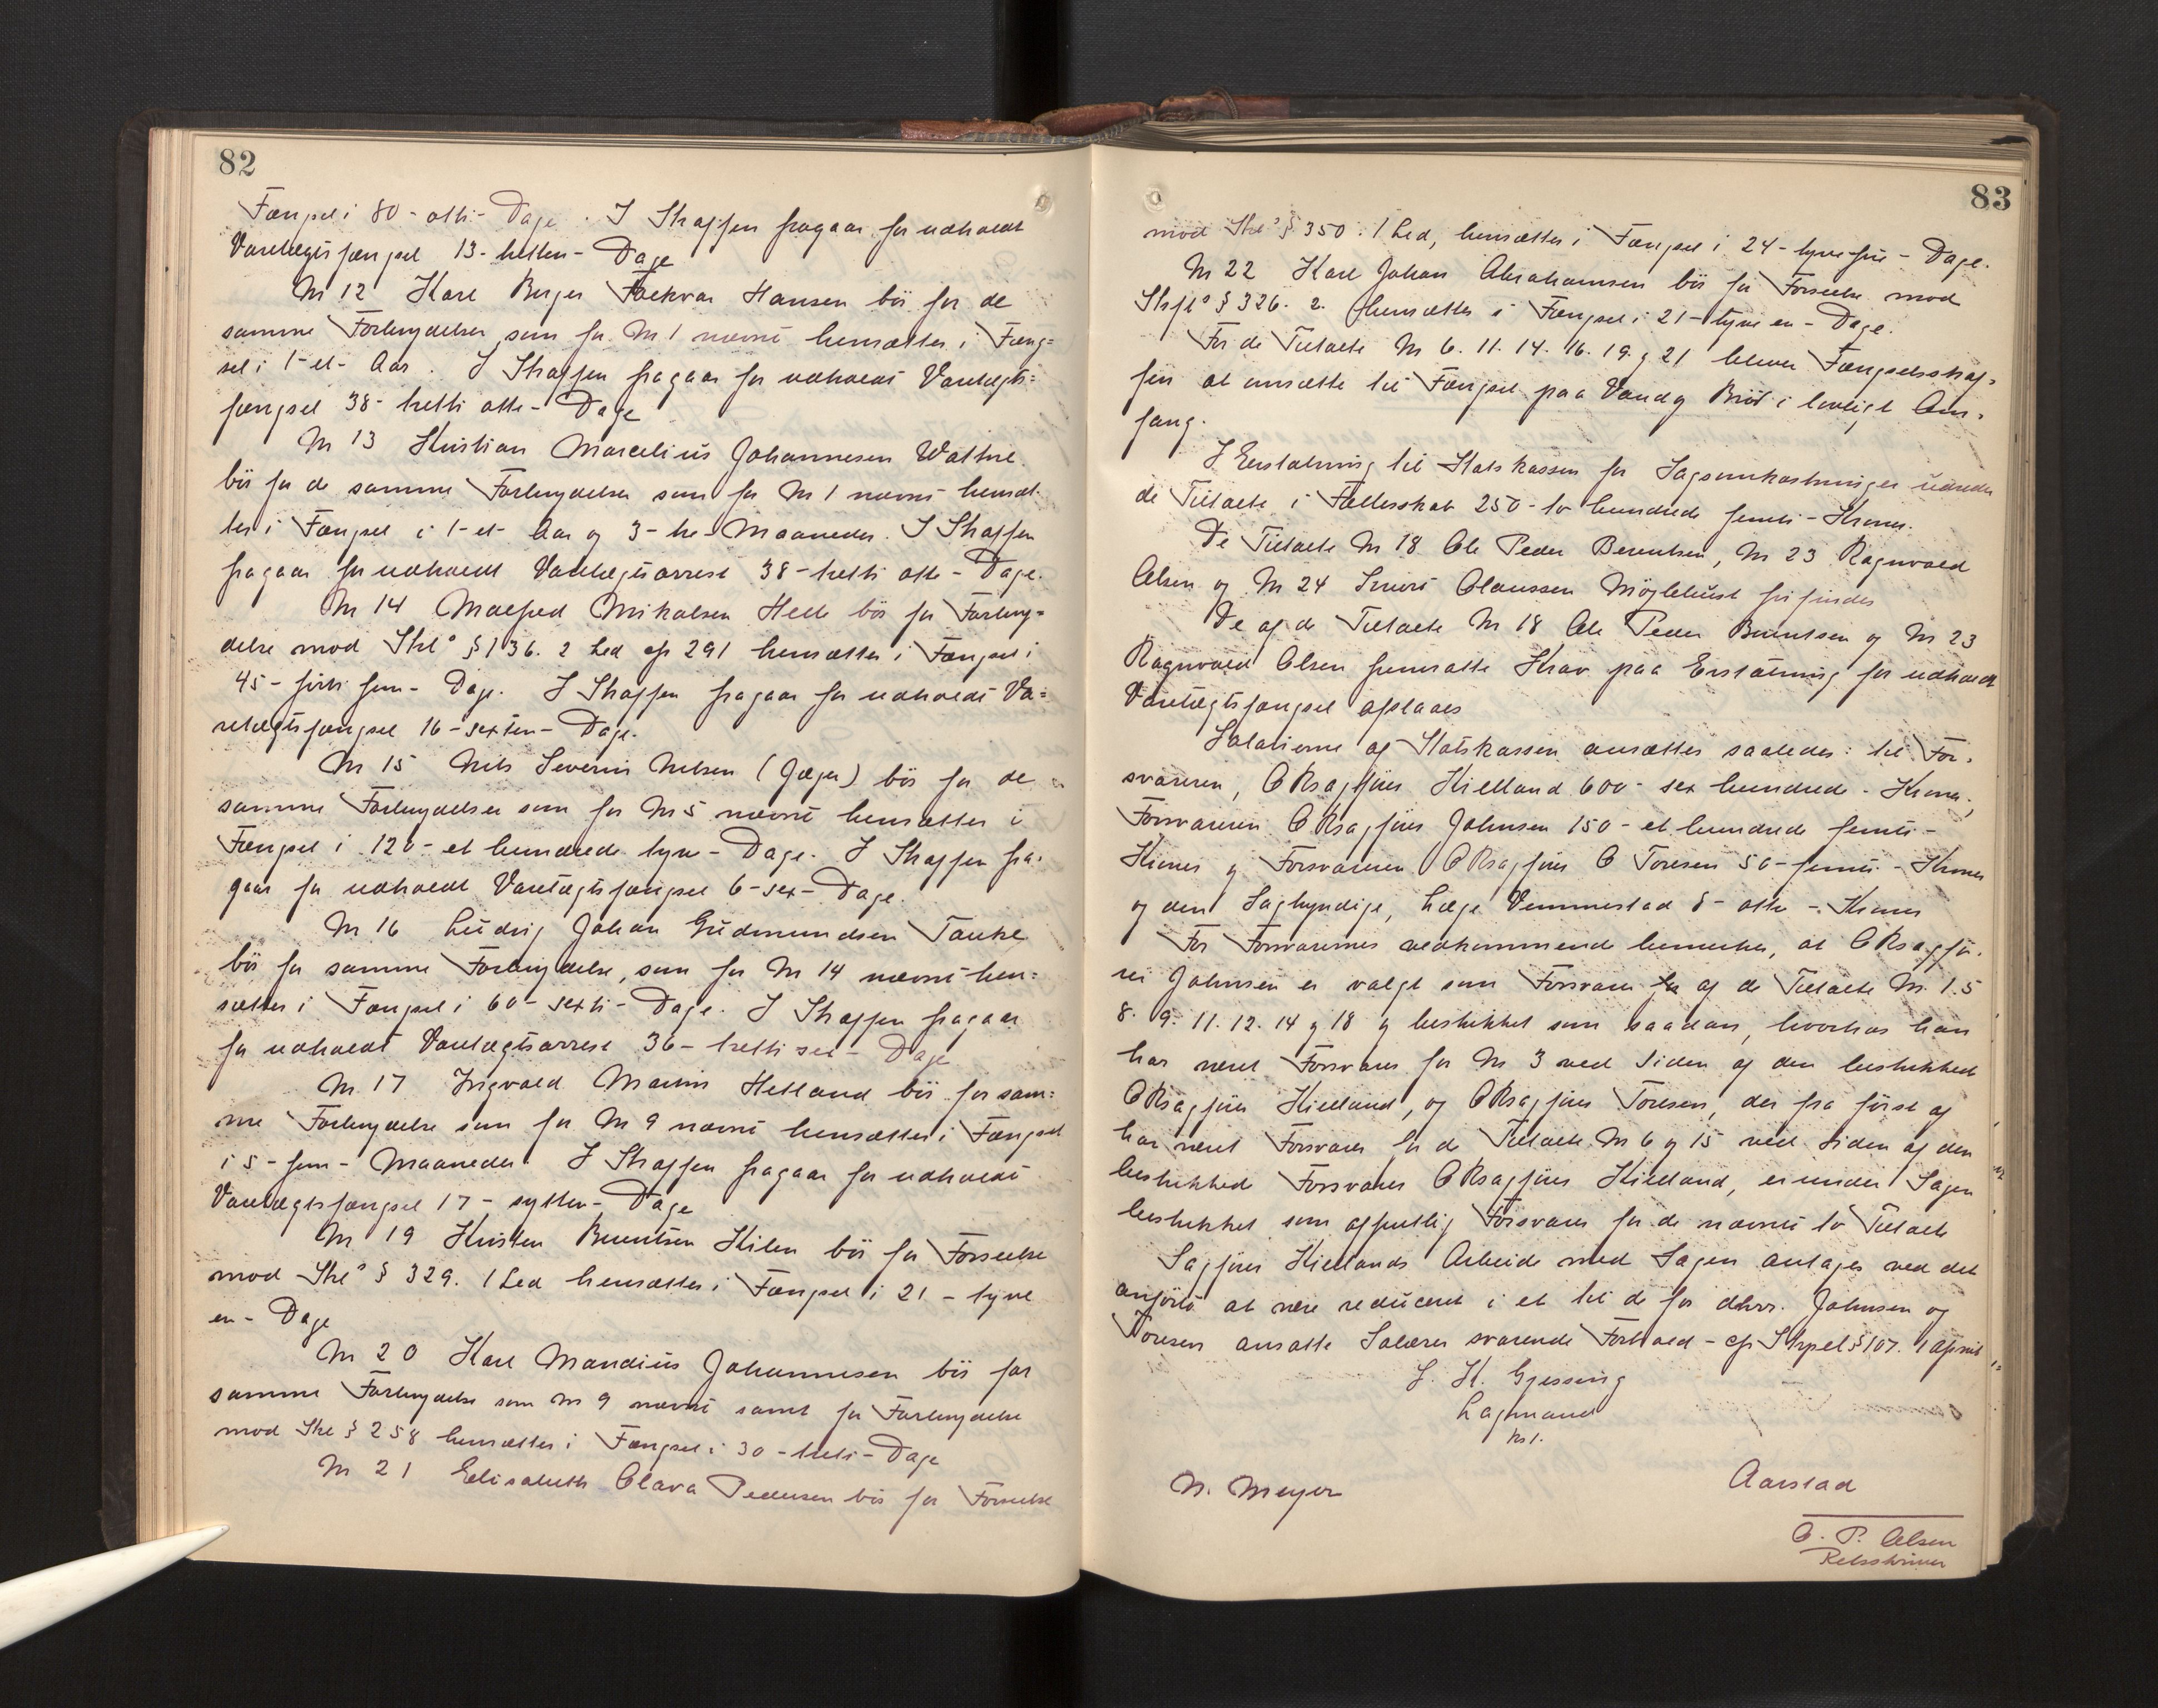 82
Fængsel i 80 - otti - Dage. I Straffen fragaar for udholdt
Varetægtsfængsel 13 - tretten - Dage
No 12 Karl Berger Falkvar Hansen bör for de
samme Forbrydelser, som for No 1 nævnt hensættes i Fæng=
sel i 1 - et - Aar. I Straffen fragaar for udholdt Varetægts=
fængsel 38 - tretti otte - Dage
No 13 Kristian Marcelius Johannesen Wathne
bör for de samme Forbrydelser som for No 1 nævnt hensæt=
tes i Fængsel i 1 - et - Aar og 3 - tre - Maaneder. I Straffen
fragaar for udholdt Varetægtsarrest 38 - tretti otte - Dage.
No 14 Malfred Mikalsen Helle bör for Forbry=
delse mod Strl° § 136. 2 Led cfr 291 hensættes i Fængsel i
45 - förti fem - Dage. I Straffen fragaar for udholdt Va=
retægtsfængsel 16 - sexten - Dage.
No 15 Nils Severin Nilsen (Jæger) bör for de
samme Forbrydelser som for No 5 nævnt hensættes i
Fængsel i 120 - et hundrede tyve - Dage. I Straffen fra=
gaar for udholdt Varetægtsfængsel 6 - sex - Dage.
No 16 Ludvig Johan Gudmundsen Tanke
bör for samme Forbrydelse, som for No 14 nævnt hen=
sættes i Fængsel i 60 - sexti - Dage. I Straffen fragaar
for udholdt Varetægtsarrest 36 - tretti sex - Dage
No 17 Ingvald Martin Hetland bör for sam=
me Forbrydelse som for No 9 nævnt hensættes i Fængsel
i 5 - fem - Maaneder. I Straffen fragaar for udholdt
Varetægtsfængsel 17 - sytten - Dage
No 19 Kirsten Berentsen Kilen bör for Forseelse
mod Strl° § 329. 1 Led hensættes i Fængsel i 21 - tyve
en - Dage
No 20 Karl Mandius Johannesen bör for
samme Forbrydelse som No 9 nævnt samt for Forbrydelse
mod Strl § 258 hensættes i Fængsel i 30 - tretti - Dage
No 21 Elisabeth Olava Pedersen bör for Forseelse
83
mod Strl° § 350. 1 Led, hensættes i Fængsel i 24 - tyve fire - Dage.
No 22 Karl Johan Abrahamsen bör for Forseelse mod
Strfl° § 326. 2. hensættes i Fængsel i 21 - tyve en - Dage.
For de Tiltalte No 6. 11. 14. 16. 19. og 21 bliver Fængselsstraf=
fen at omsætte til Fængsel paa Vand og Bröd i lovligt Om=
fang.
I Erstatning til Statskassen for Sagsomkostninger udreder
de Tiltalte i Fællesskab 250 - to hundrede femti - Kroner.
De Tiltalte No 18 Ole Peder Berentsen, No 23 Ragnvald
Olsen og No 24 Sivert Olaussen Möglebust frifindes
De af de Tiltalte No 18 Ole Peder Berentsen og No 23
Ragnvald Olsen fremsatte Krav paa Erstatning for udholdt
Varetægtsfængsel afslaaes
Salarierne af Statskassen ansættes saaledes: til For=
svareren, ORsagförer Kielland 600 - sex hundrede - Kroner,
Forsvareren ORsagförer Johnsen 150 - et hundrede femti -
Kroner og Forsvareren ORsagförer O Toresen 50 - femti - Kroner
og den Sagkyndige, Læge Vemmestad 8 - otte - Kroner
For Forsvarernes vedkommende bemerkes, at ORsagfö=
rer Johnsen er valgt som Forsvarer af de Tiltalte No 1. 5
8. 9. 11. 12. 14 og 18 og beskikket som saadan, hvorhos han
har været Forsvarer for No 3 ved Siden af den beskikkede
ORsagförer Kielland, og ORsagförer Toresen, der fra först af
har været Forsvarer for de Tiltalte No 6 og 15 ved Siden af den
beskikkede Forsvarer ORsagförer Kielland, er under Sagen
beskikket som offentlig Forsvarer for de nævnte to Tiltalte
Sagförer Kiellands Arbeide med Sagen antages ved det
anförte at være reduceret i et til de for dhrr. Johnsen og
Toresen ansatte Salærer svarende Forhold - cfr Strpcl § 107. 1 Afsnit
J. K. Gjessing
Lagmand
kst.
N. Meyer
Aarstad
O. P. Olsen
Retsskriver